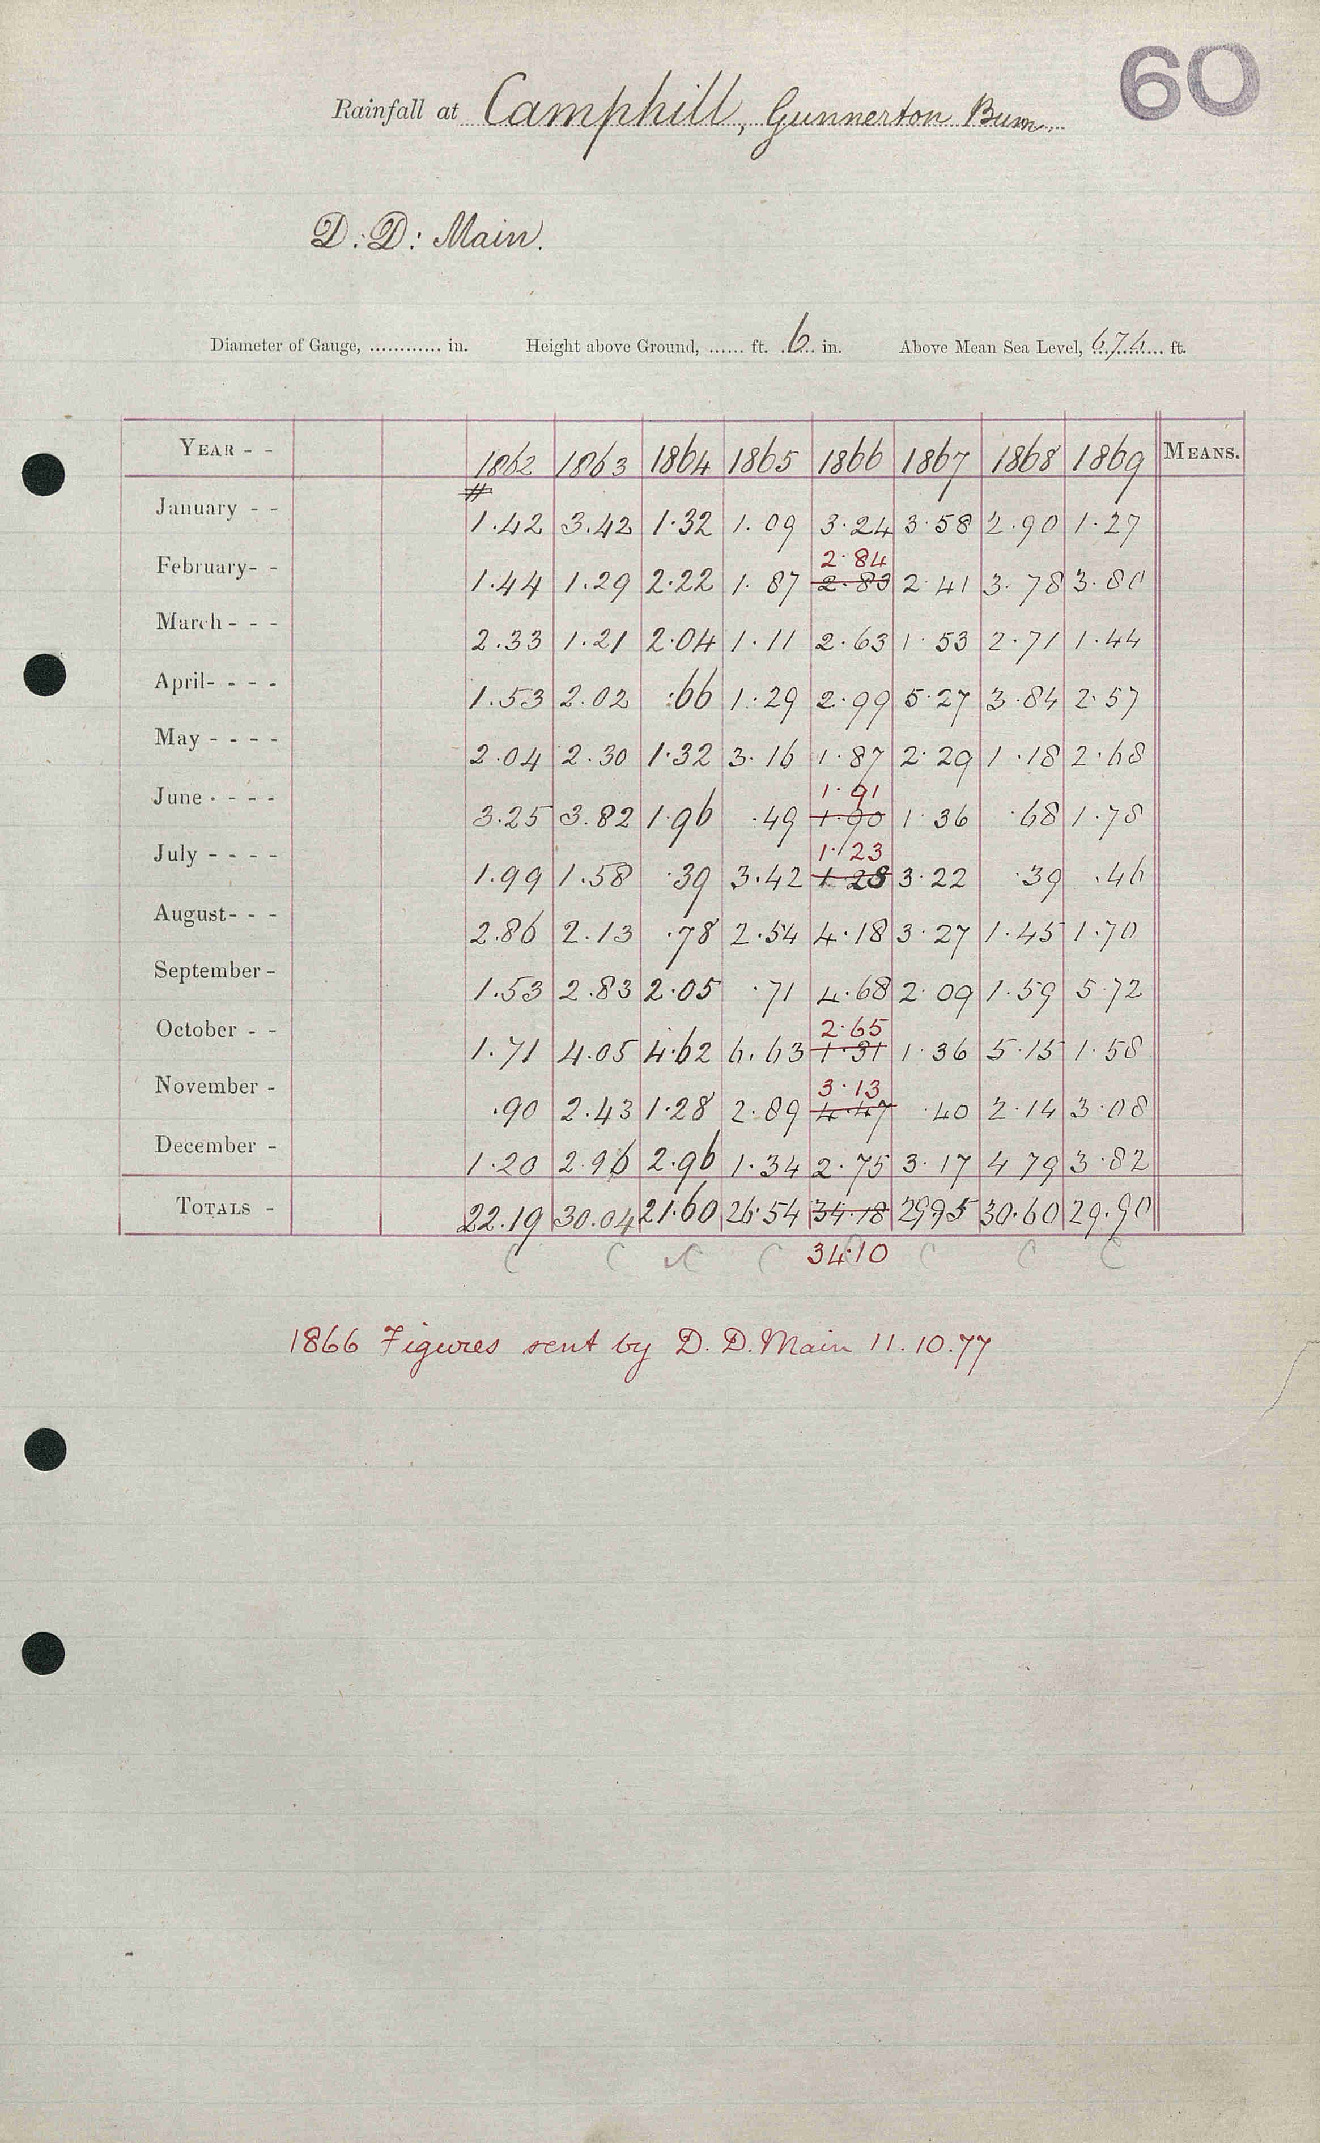 60
Rainfall at Camphill, Gunnerton Burn
D. D: Main.
Diameter of Gauge, ............ in. Height above Ground, ...... ft. 6 in. Above Mean Sea Level, ft.
YEAR - - 1862 1863 1864 1865 1866 1867 1868 1869 MEANS.
#
January - - 1.42 3.42 1.32 1.09 3.24 3.58 2.90 1.27
2.84
February- - 1.44 1.29 2.22 1.87 2.83 2.41 3.78 3.80
March - - - 2.33 1.21 2.04 1.11 2.63 1.53 2.71 1.44
April- - - - 1.53 2.02 .66 1.29 2.99 5.27 3.84 2.57
May - - - - 2.04 2.30 1.32 3.16 1.87 2.29 1.18 2.68
1.91
June - - - - 3.25 3.82 1.96 .49 1.90 1.36 .68 1.78
1.23
July - - - - 1.99 1.58 .39 3.42 1.28 3.22 .39 .46
August- - - 2.86 2.13 .78 2.54 4.18 3.27 1.45 1.70
September - 1.53 2.83 2.05 .71 4.68 2.09 1.59 5.72
2.65
October - - 1.71 4.05 4.62 6.63 1.31 1.36 5.15 1.58
3.13
November - .90 2.43 1.28 2.89 4.47 .40 2.14 3.08
December - 1.20 2.96 2.96 1.34 2.75 3.17 4.79 3.82
TOTALS - 22.19 30.04 21.60 26.54 34.18 29.95 30.60 29.90
34.10
1866 Figures sent by D. D. Main 11.10.77